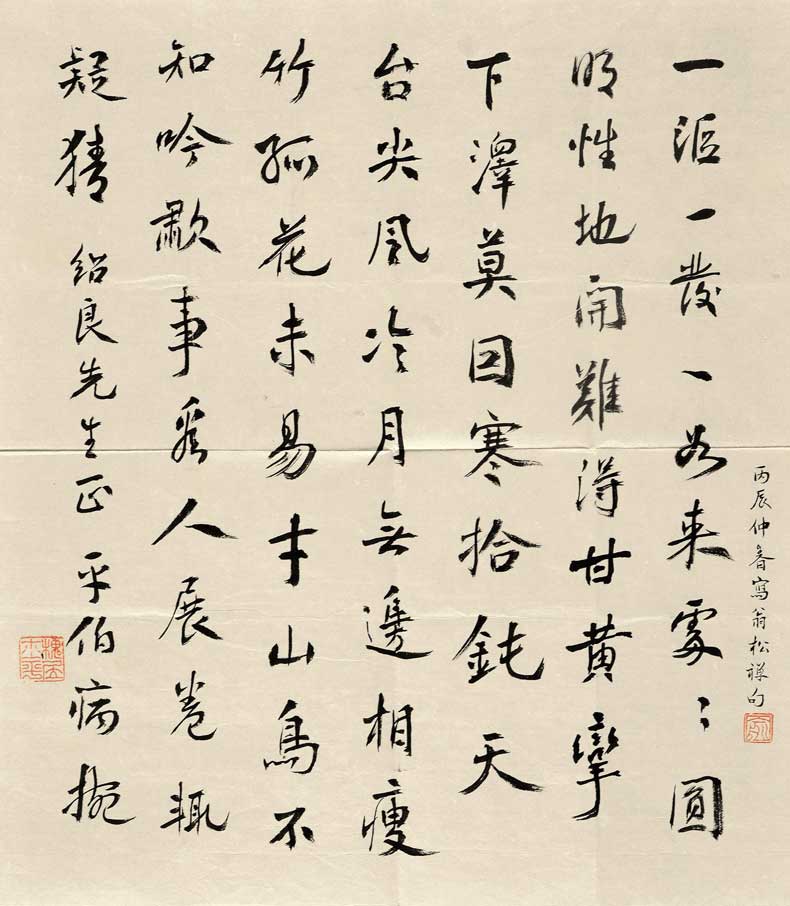 一漚一發一如来處〻圓
明性地開難得甘黄攣
下澤莫因寒拾鈍天
台尖風冷月無邊相瘦
竹孤花未易才山鳥不
知吟歗事看人展卷輒
疑猜 紹良先生正 平伯病捥
丙辰仲春寫翁松禅句